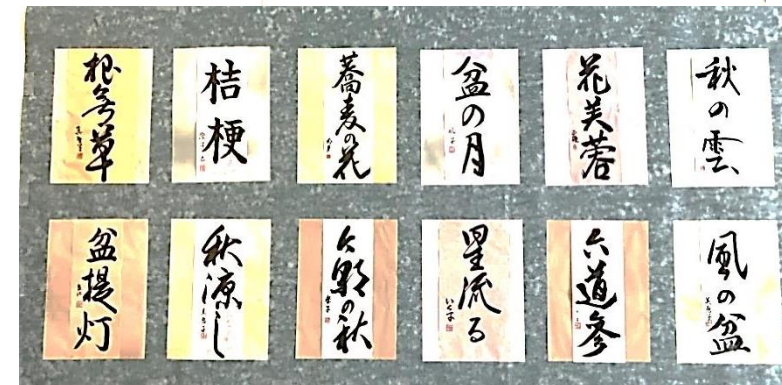 秋の雲
花芙蓉
盆の月
蕎麦の花
桔梗
根無草
風の盆
六道参
星流る
いく子
今朝の秋
秋涼し
盆提灯